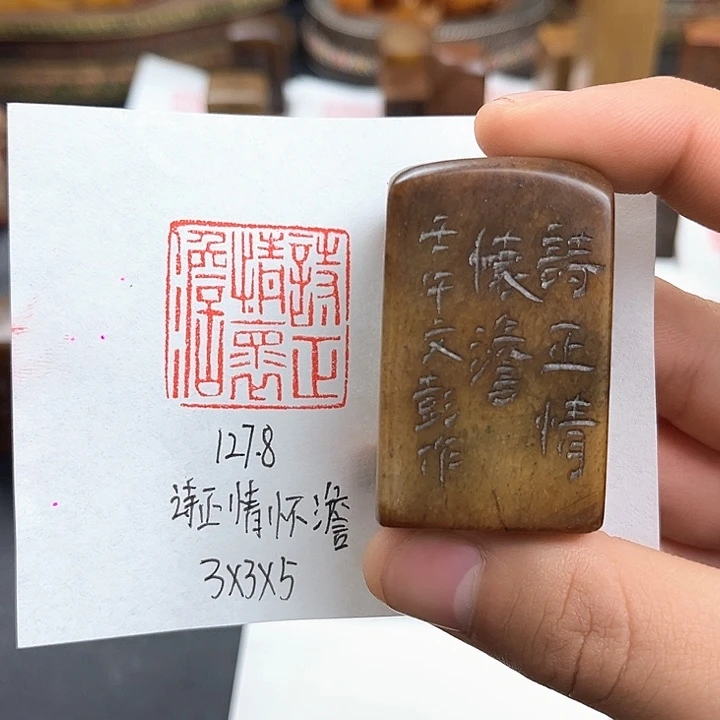 詩正
情褱
澹
127.8
诗正情怀澹
3X3X5
詩正情
懷澹
壬午文彭作